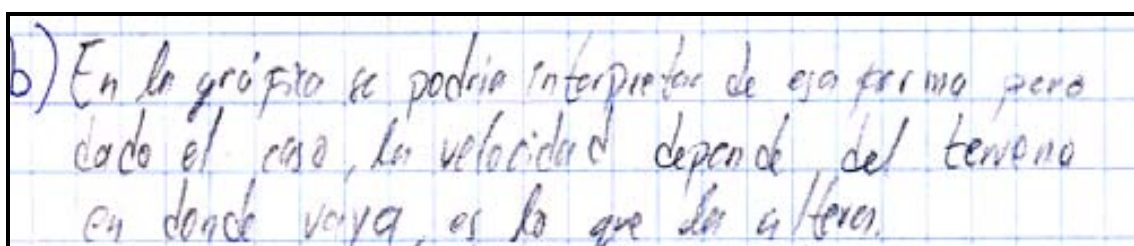 b) En la gráfica se podria interpretar de esa forma pero
dado el caso, la velocidad depende del terreno
en donde vaya, es lo que la altera.